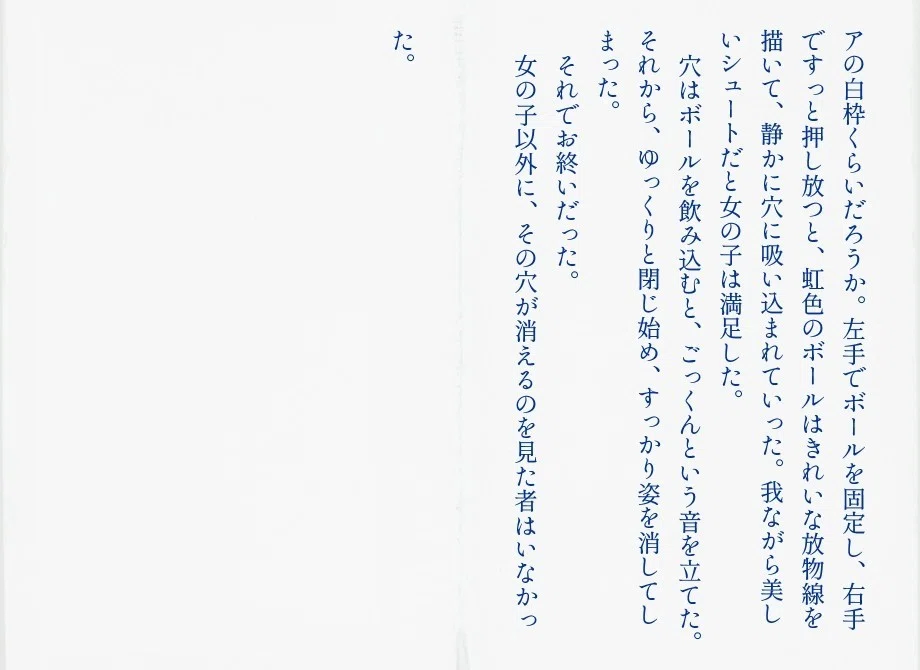 アの白枠くらいだろうか。左手でボールを固定し、右手
ですっと押し放つと、虹色のボールはきれいな放物線を
描いて、静かに穴に吸い込まれていった。我ながら美し
いシュートだと女の子は満足した。
穴はボールを飲み込むと、ごっくんという音を立てた。
それから、ゆっくりと閉じ始め、すっかり姿を消してし
まった。
それでお終いだった。
女の子以外に、その穴が消えるのを見た者はいなかっ
た。